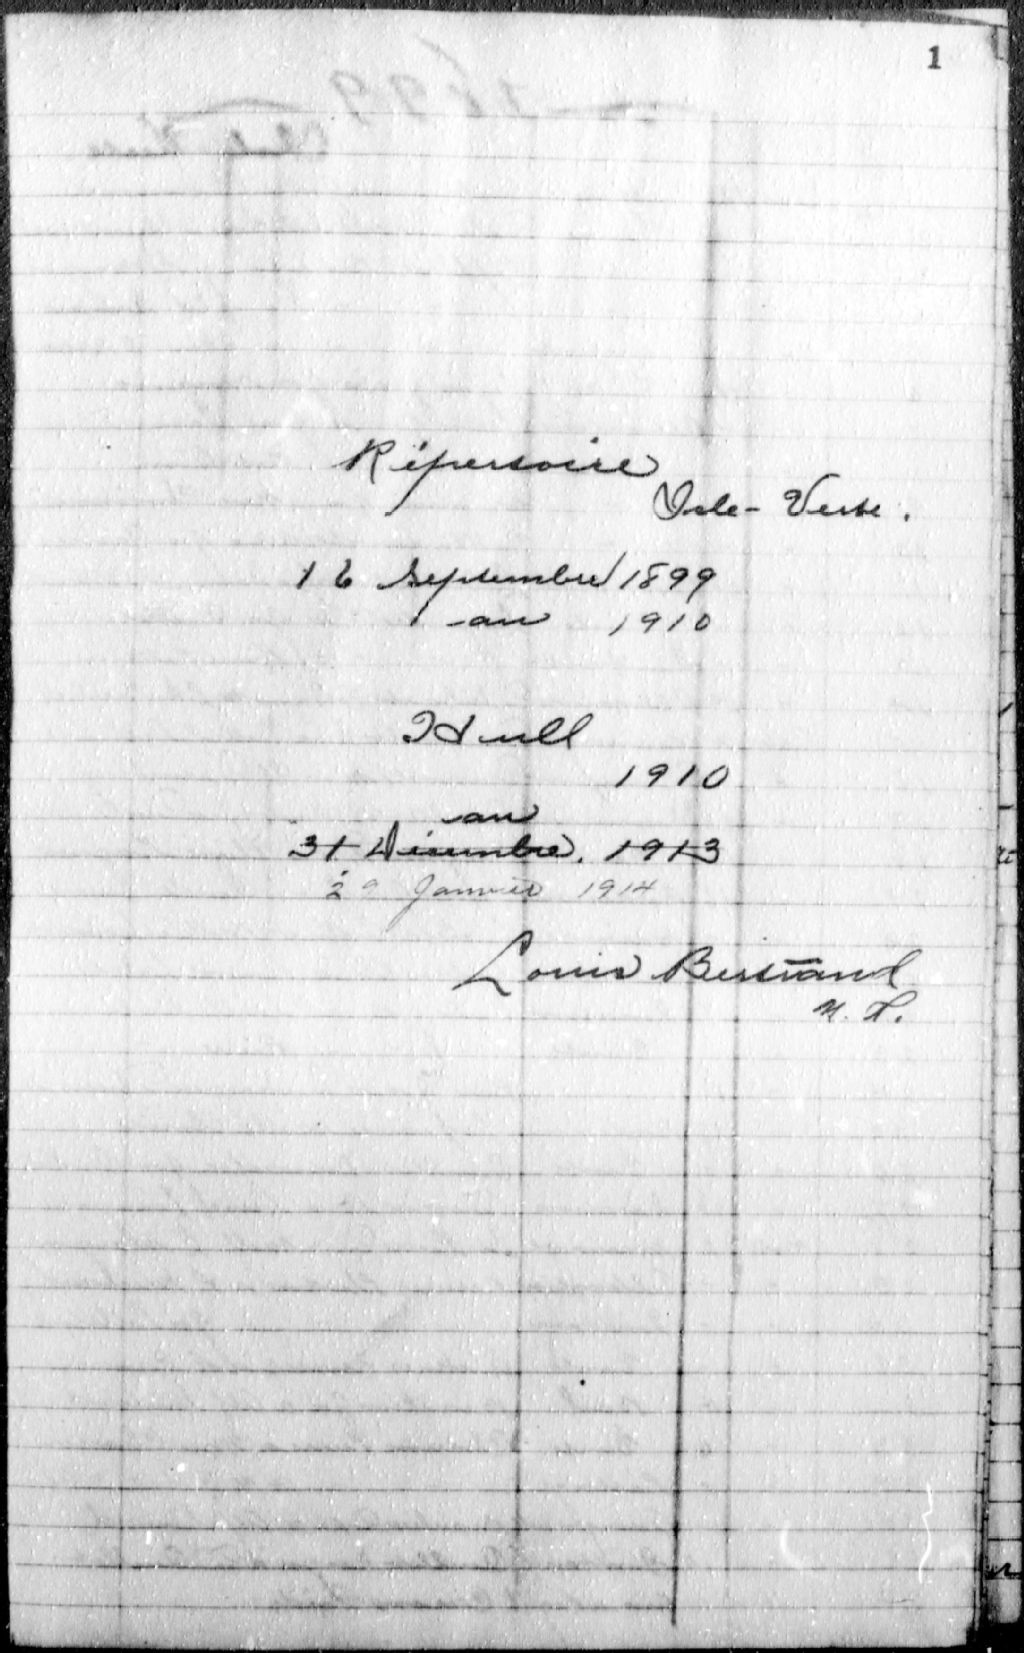 1
Répertoire
Isle-Verte.
16 Septembre 1899
au 1910
Hull
1910
au
31 Décembre. 1913
29 Janvier 1914
Louis Bertrand
N. P.